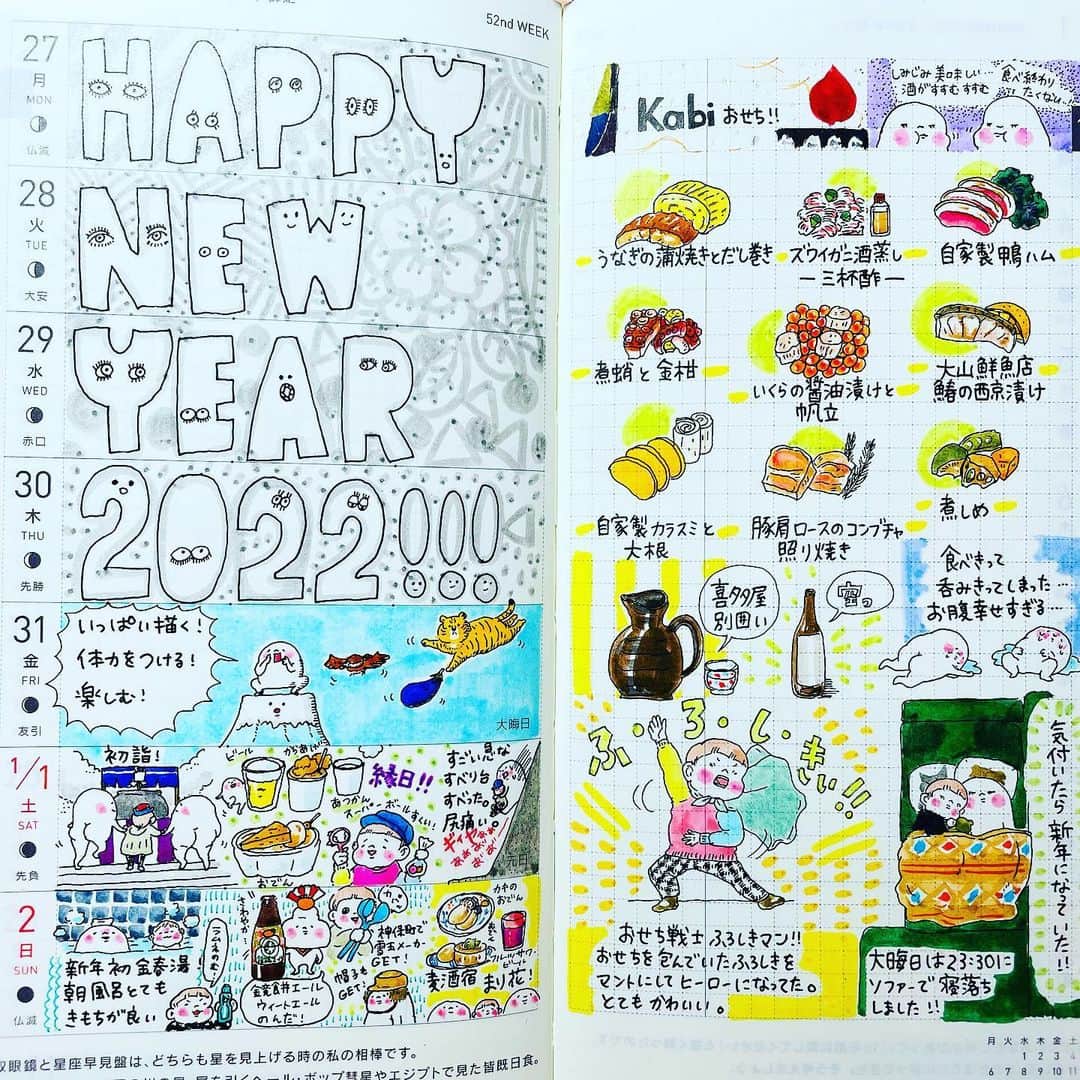 52nd WEEK
27
月
MON
仏滅
HAPPY
28
火
TUE
大安
NEW
29
水
WED
赤口
YEAR
30
木
THU
先勝
2022!!!
31
金
FRI
友引
いっぱい描く!
体力をつける!
楽しむ!
大晦日
1/1
土
SAT
先負
初詣!
ビール
からあげ
あつかん
おでん
縁日!!
スーパーボールすくい!
すごい急な
すべり台
すべった。
尻痛い。
元日
2
日
SUN
仏滅
新年初金春湯!
朝風呂とても
きもちが良い
ラムネのむ!
さわやか…
金麦倉井エール
ウィートエール
のんだ!
神保町で
雪玉メーカー
GET!
帽子も
GET!
カキの
おでん
麦酒宿 まり花!
双眼鏡と星座早見盤は、どちらも星を見上げる時の私の相棒です。
Kabi おせち!!
しみじみ美味しい…
酒がすすむすすむ
食べ終わり
たくない…
うなぎの蒲焼きとだし巻き
ズワイガニ酒蒸し
―三杯酢―
自家製鴨ハム
煮蛸と金柑
いくらの醤油漬けと
帆立
大山鮮魚店
鰆の西京漬け
自家製カラスミと
大根
豚肩ロースのコンブチャ
照り焼き
煮しめ
喜多屋
別囲い
空っ
食べきって
呑みきってしまった…
お腹幸せすぎる…
ふ・ろ・し・きぃ!!
おせち戦士 ふろしきマン!!
おせちを包んでいたふろしきを
マントにしてヒーローになってた。
とてもかわいい。
気付いたら新年になっていた!!
大晦日は23:30に
ソファーで寝落ち
しました!!
月 火 水 木 金 土
1 2 3 4
6 7 8 9 10 11